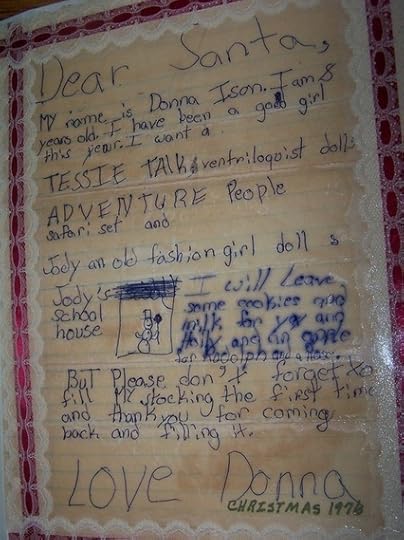 Dear Santa,
My name is Donna Ison. I am 8
years old. I have been a good girl
this year. I want a
TESSIE TALK ventriloquist doll
ADVENTURE People
safari set and
Jody an old fashion girl doll
Jody's
school
house
I will Leave
some cookies and
milk for you and
for Rudolph
BUT Please don't forget to
fill My stocking the first time
and thank you for coming
back and filling it.
LOVE Donna
CHRISTMAS 1976